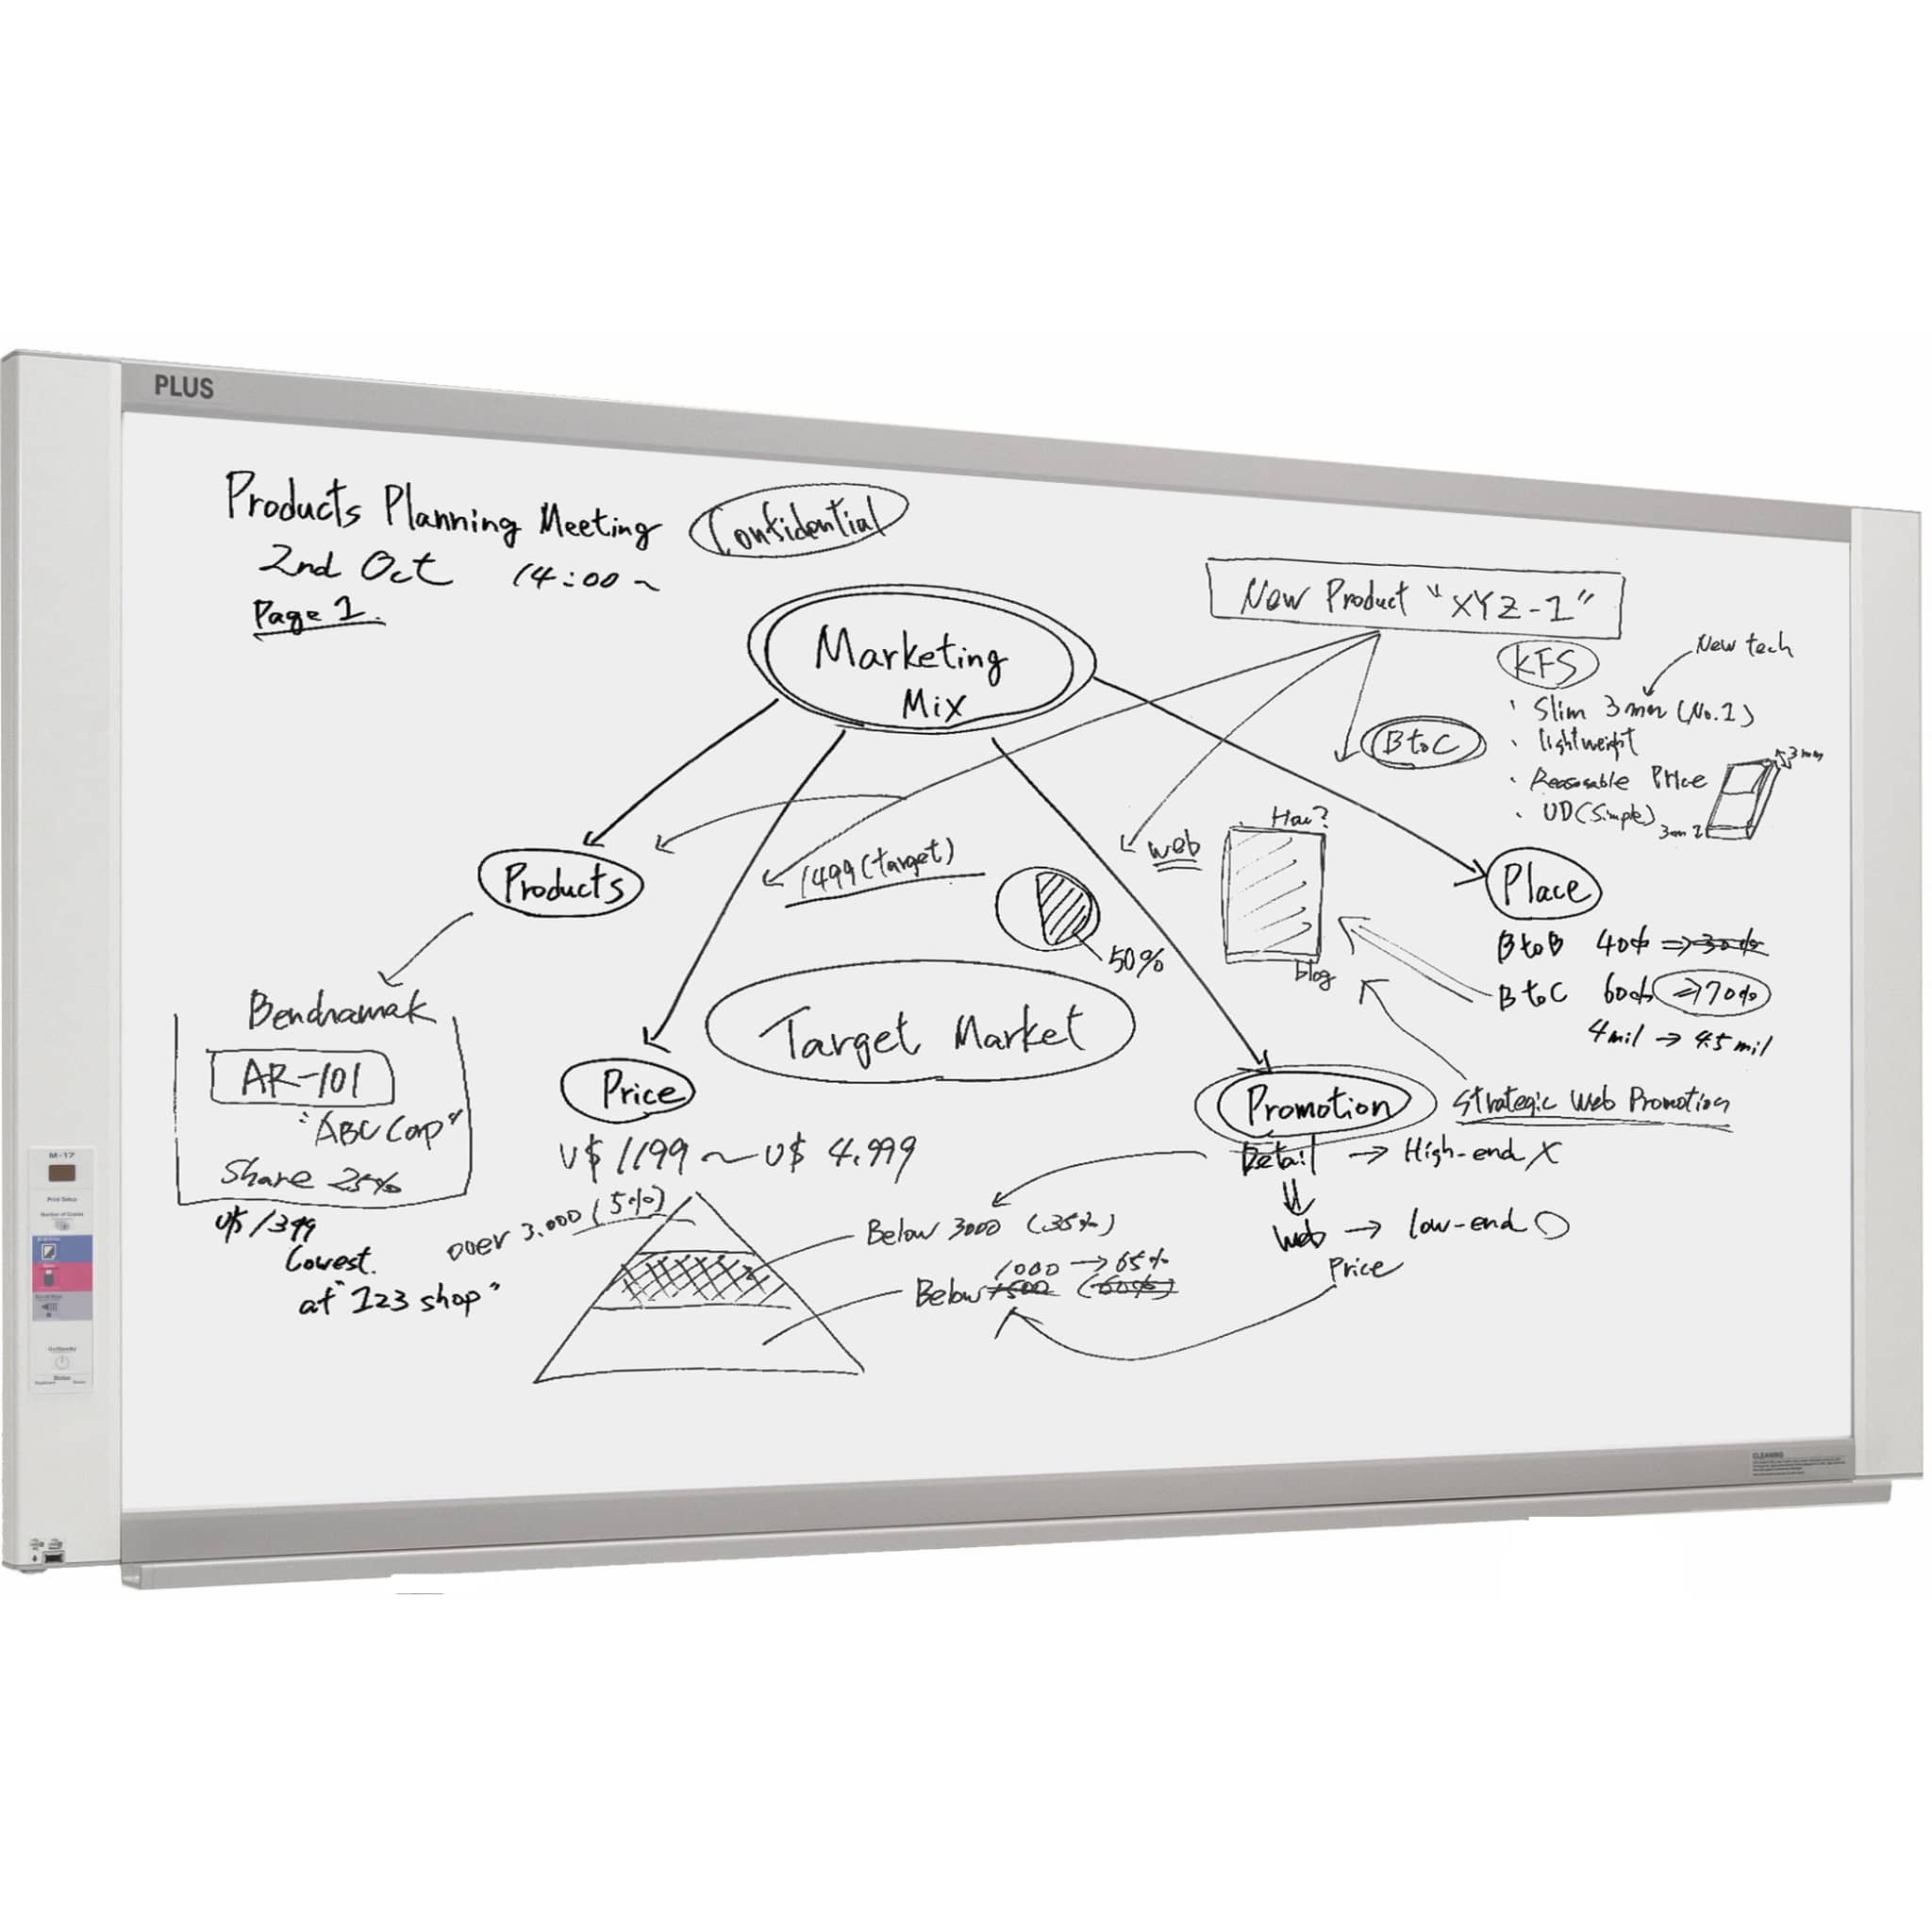 PLUS
Products Planning Meeting Confidential
2nd Oct 14:00~
Page 1.
Marketing
Mix
New Product "XYZ-1"
KFS
New tech
・Slim 3mm (No.1)
・lightweight
・Reasonable Price
・UD(Simple)
3mm
3mm
B to C
How?
web
blog
1499 (target)
50%
Products
Bendnamak
AR-101
"ABC Corp"
Share 25%
U$ 1399
Lowest.
at "123 shop"
Target Market
Price
U$ 1199 ~ U$ 4,999
over 3.000 (5%)
Below 3000 (35%)
1000 → 65%
Below 1500 (60%)
Place
B to B 40% ⇒ 30%
B to C 60% ⇒ 70%
4mil → 4.5mil
Strategic Web Promotion
Promotion
Detail → High-end X
⇓
Web → low-end ○
Price
M-17
Print Setup
Number of Copies
CLEANING